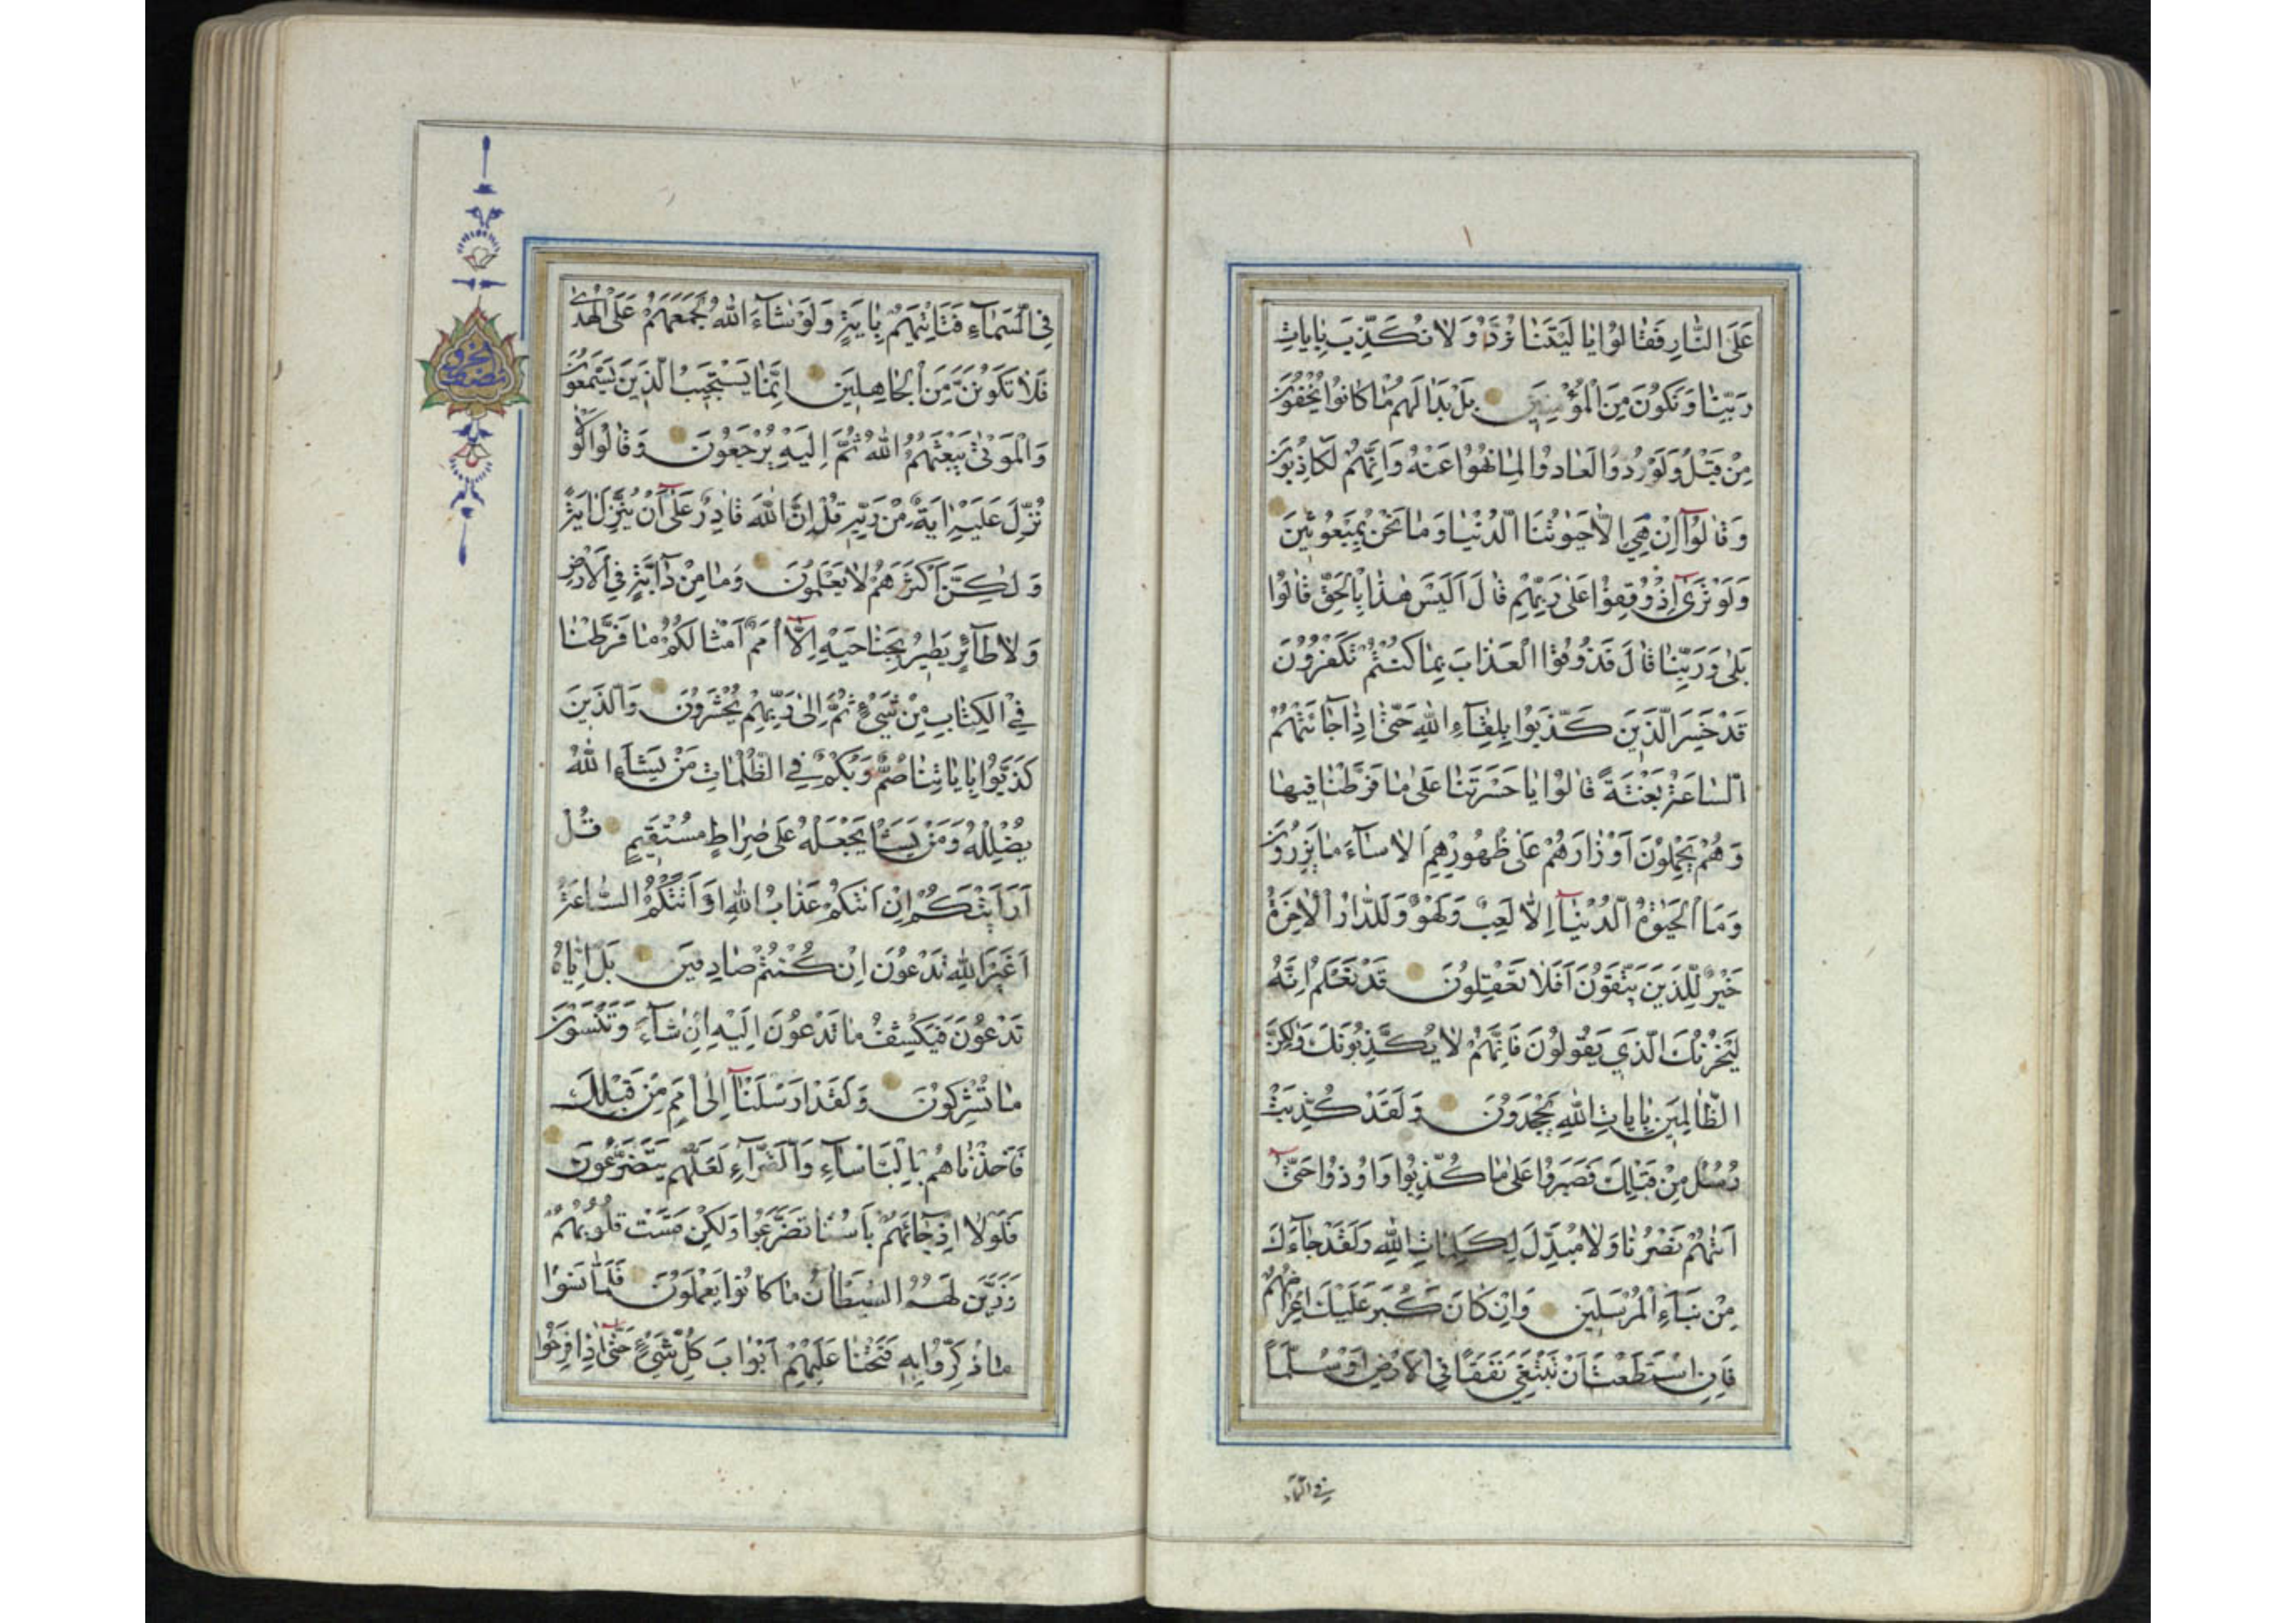 عَلَى النَّارِ فَقَالُوا يَا لَيْتَنَا نُرَدُّ وَلَا نُكَذِّبَ بِاٰيَاتِ
رَبِّنَا وَنَكُونَ مِنَ الْمُؤْمِنِينَ بَلْ بَدَا لَهُمْ مَا كَانُوا يُخْفُونَ
مِنْ قَبْلُ وَلَوْ رُدُّوا لَعَادُوا لِمَا نُهُوا عَنْهُ وَاِنَّهُمْ لَكَاذِبُونَ
وَقَالُوٓا اِنْ هِيَ اِلَّا حَيٰوتُنَا الدُّنْيَا وَمَا نَحْنُ بِمَبْعُوثِينَ
وَلَوْ تَرٰٓى اِذْ وُقِفُوا عَلٰى رَبِّهِمْ قَالَ اَلَيْسَ هٰذَا بِالْحَقِّ قَالُوا
بَلٰى وَرَبِّنَا قَالَ فَذُوقُوا الْعَذَابَ بِمَا كُنْتُمْ تَكْفُرُونَ
قَدْ خَسِرَ الَّذِينَ كَذَّبُوا بِلِقَٓاءِ اللهِ حَتّٰٓى اِذَا جَائَتْهُمُ
السَّاعَةُ بَغْتَةً قَالُوا يَا حَسْرَتَنَا عَلٰى مَا فَرَّطْنَا فِيهَا
وَهُمْ يَحْمِلُونَ اَوْزَارَهُمْ عَلٰى ظُهُورِهِمْ اَلَا سَٓاءَ مَا يَزِرُونَ
وَمَا الْحَيٰوةُ الدُّنْيَٓا اِلَّا لَعِبٌ وَلَهْوٌ وَلَلدَّارُ الْاٰخِرَةُ
خَيْرٌ لِلَّذِينَ يَتَّقُونَ اَفَلَا تَعْقِلُونَ قَدْ نَعْلَمُ اِنَّهُ
لَيَحْزُنُكَ الَّذِي يَقُولُونَ فَاِنَّهُمْ لَا يُكَذِّبُونَكَ وَلٰكِنَّ
الظَّالِمِينَ بِاٰيَاتِ اللهِ يَجْحَدُونَ وَلَقَدْ كُذِّبَتْ
رُسُلٌ مِنْ قَبْلِكَ فَصَبَرُوا عَلٰى مَا كُذِّبُوا وَاُوذُوا حَتّٰٓى
اَتٰهُمْ نَصْرُنَا وَلَا مُبَدِّلَ لِكَلِمَاتِ اللهِ وَلَقَدْ جَٓاءَكَ
مِنْ نَبَاءِ الْمُرْسَلِينَ وَاِنْ كَانَ كَبُرَ عَلَيْكَ اِعْرَاضُهُمْ
فَاِنِ اسْتَطَعْتَ اَنْ تَبْتَغِيَ نَفَقًا فِي الْاَرْضِ اَوْ سُلَّمًا
فِي السَّمَٓاءِ فَتَأْتِيَهُمْ بِاٰيَةٍ وَلَوْ شَٓاءَ اللهُ لَجَمَعَهُمْ عَلَى الْهُدٰى
فَلَا تَكُونَنَّ مِنَ الْجَاهِلِينَ اِنَّمَا يَسْتَجِيبُ الَّذِينَ يَسْمَعُونَ
وَالْمَوْتٰى يَبْعَثُهُمُ اللهُ ثُمَّ اِلَيْهِ يُرْجَعُونَ وَقَالُوا لَوْلَا
نُزِّلَ عَلَيْهِ اٰيَةٌ مِنْ رَبِّهِ قُلْ اِنَّ اللهَ قَادِرٌ عَلٰٓى اَنْ يُنَزِّلَ اٰيَةً
وَلٰكِنَّ اَكْثَرَهُمْ لَا يَعْلَمُونَ وَمَا مِنْ دَٓابَّةٍ فِي الْاَرْضِ
وَلَا طَٓائِرٍ يَطِيرُ بِجَنَاحَيْهِ اِلَّٓا اُمَمٌ اَمْثَالُكُمْ مَا فَرَّطْنَا
فِي الْكِتَابِ مِنْ شَيْءٍ ثُمَّ اِلٰى رَبِّهِمْ يُحْشَرُونَ وَالَّذِينَ
كَذَّبُوا بِاٰيَاتِنَا صُمٌّ وَبُكْمٌ فِي الظُّلُمَاتِ مَنْ يَشَاءِ اللهُ
يُضْلِلْهُ وَمَنْ يَشَأْ يَجْعَلْهُ عَلٰى صِرَاطٍ مُسْتَقِيمٍ قُلْ
اَرَاَيْتَكُمْ اِنْ اَتٰكُمْ عَذَابُ اللهِ اَوْ اَتَتْكُمُ السَّاعَةُ
اَغَيْرَ اللهِ تَدْعُونَ اِنْ كُنْتُمْ صَادِقِينَ بَلْ اِيَّاهُ
تَدْعُونَ فَيَكْشِفُ مَا تَدْعُونَ اِلَيْهِ اِنْ شَٓاءَ وَتَنْسَوْنَ
مَا تُشْرِكُونَ وَلَقَدْ اَرْسَلْنَٓا اِلٰٓى اُمَمٍ مِنْ قَبْلِكَ
فَاَخَذْنَاهُمْ بِالْبَأْسَٓاءِ وَالضَّرَّٓاءِ لَعَلَّهُمْ يَتَضَرَّعُونَ
فَلَوْلَا اِذْ جَائَهُمْ بَأْسُنَا تَضَرَّعُوا وَلٰكِنْ قَسَتْ قُلُوبُهُمْ
وَزَيَّنَ لَهُمُ الشَّيْطَانُ مَا كَانُوا يَعْمَلُونَ فَلَمَّا نَسُوا
مَا ذُكِّرُوا بِهِ فَتَحْنَا عَلَيْهِمْ اَبْوَابَ كُلِّ شَيْءٍ حَتّٰٓى اِذَا فَرِحُوا
في السماء